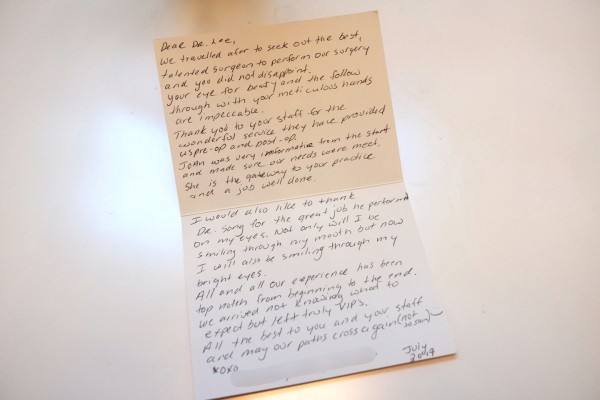 Dear Dr. Lee,
We travelled afar to seek out the best,
talented surgeon to perform our surgery
and you did not disappoint.
Your eye for beaty and the follow
through with your meticulous hands
are impeccable.
Thank you to your staff for the
wonderful service they have provided
us pre-op and post-op.
JoAn was very informative from the start
and made sure our needs were meet.
She is the gateway to your practice
and a job well done.
I would also like to thank
Dr. Song for the great job he performed
on my eyes. Not only will I be
smiling through my mouth but now
I will also be smiling through my
bright eyes.
All and all our experience has been
top notch from beginning to the end.
We arrived not knowing what to
expect but left truly VIPs.
All the best to you and your staff
and may our paths cross again (not so soon)
xoxo
July